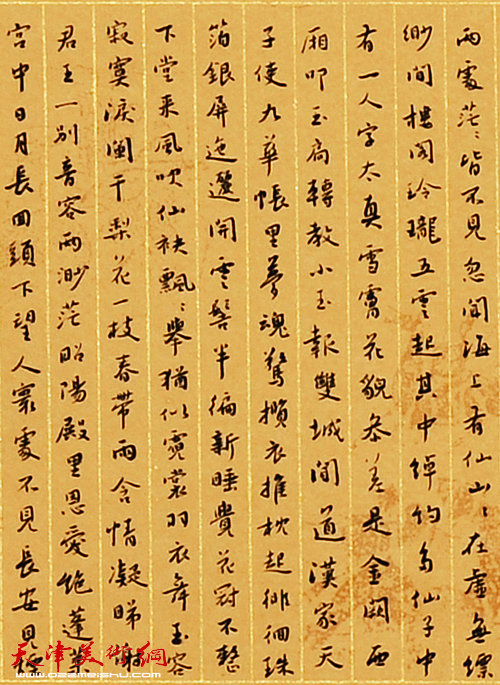 兩處茫々皆不見忽聞海上有仙山々在虛無縹
緲間樓閣玲瓏五雲起其中綽約多仙子中
有一人字太真雪膚花貌參差是金闕西
廂叩玉扃轉教小玉報雙城聞道漢家天
子使九華帳里夢魂驚攬衣推枕起徘徊珠
箔銀屏迤邐開雲髻半偏新睡覺花冠不整
下堂來風吹仙袂飄々舉猶似霓裳羽衣舞玉容
寂寞淚闌干梨花一枝春帶雨含情凝睇謝
君王一別音容兩渺茫昭陽殿里恩愛絕蓬萊
宮中日月長回頭下望人寰處不見長安見塵
天津美術網
www.022meishu.com